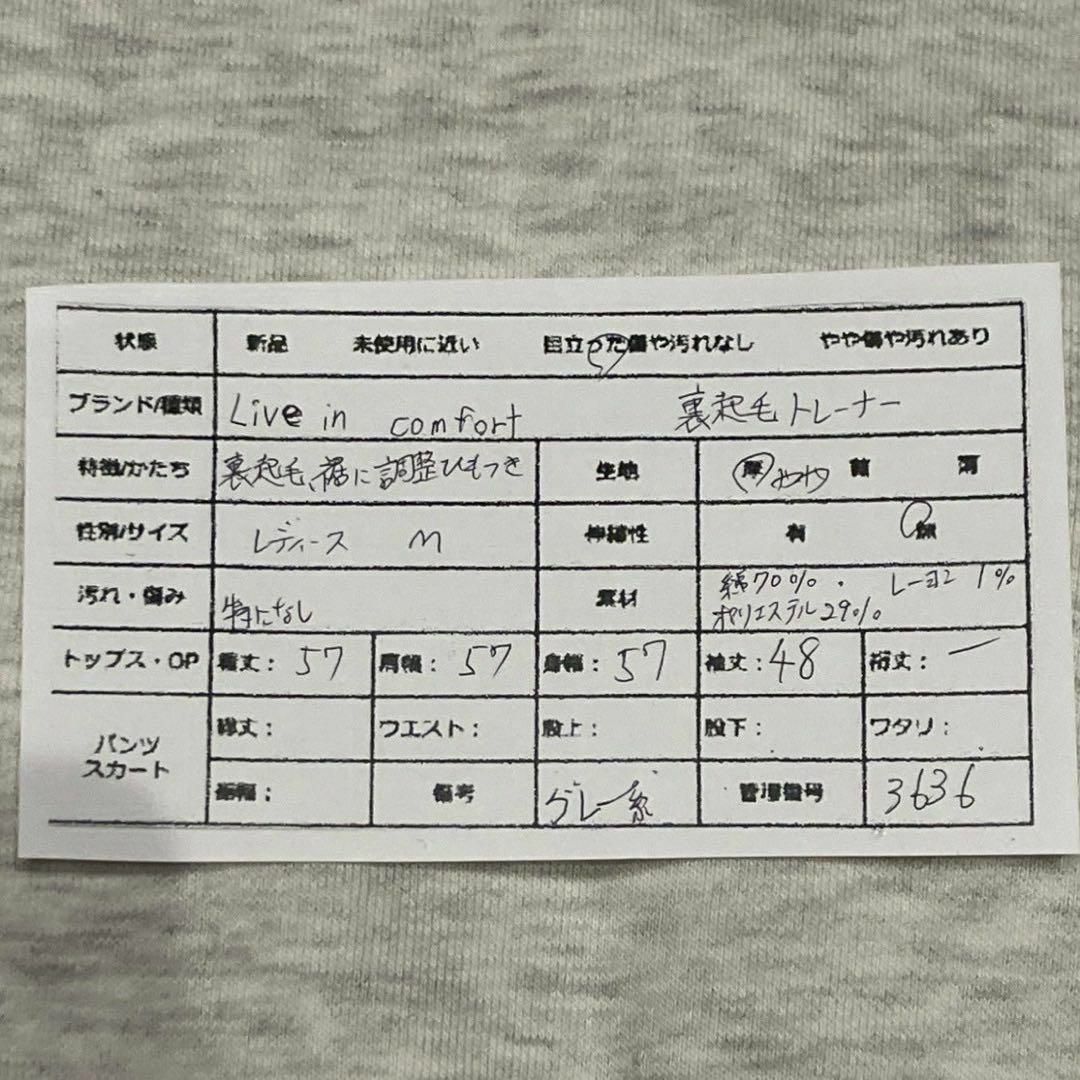 状態 新品 未使用に近い 目立った傷や汚れなし やや傷や汚れあり
ブランド/種類 Live in comfort 裏起毛トレーナー
特徴/かたち 裏起毛、裾に調整ひもつき 生地 厚 やや 普 薄
性別/サイズ レディース M 伸縮性 有 無
汚れ・傷み 特になし 素材 綿70%・ レーヨン 1%
ポリエステル29%
トップス・OP 着丈：57 肩幅：57 身幅：57 袖丈：48 裄丈：ー
パンツ
スカート
総丈： ウエスト： 股上： 股下： ワタリ：
裾幅： 備考 グレー系 管理番号 3636